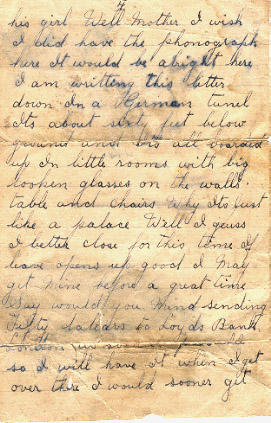 7
his girl Well Mother I wish
I did have the phonograph
here It would be alright here
I am writting this letter
down In a German tunel
Its about sixty feet below
ground and its all boarded
up In little rooms with big
looken glasses on the walls.
table and chairs Why Its Just
like a palace Well I geuss
I better close for this time If
leave opens up good I may
get mine before a great time
Say would you mind sending
Fifty dolears to Loyds Bank
London
so I will have it when I get
over there I would sooner get